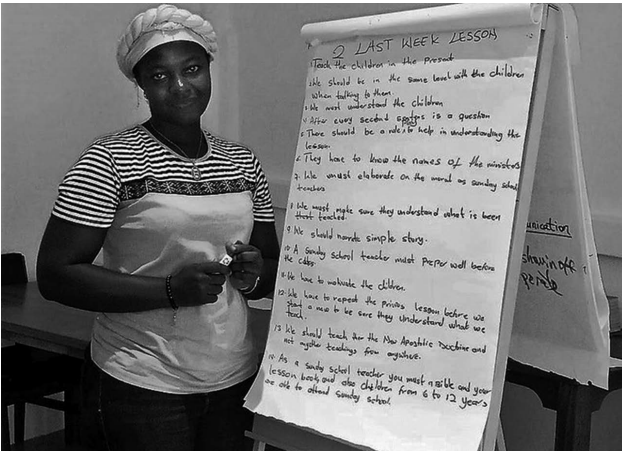 2 LAST WEEK LESSON
1 Teach the children in the present
2. We should be in the same level with the children
When talking to them.
3. We must understand the children
4 After every second is a question
5. There should be a role to help in understanding the
lesson.
6. They have to know the names of the ministers
7. We must elaborate on the moral as sunday school
teachers
8. We must make sure they understand what is been
teached.
9. We should narrate simple story.
10. A Sunday school teacher must well before
the class.
11. We have to motivate the children.
12. We have to repeat the lesson before we
start a new to be sure they understand what we
teach.
13. We should teach the New Apostolic Doctrine and
not anyother teachings from anywhere.
14. As a sunday school teacher you must a bible and your
lesson book and also children from 6 to 12 years
are able to attend sunday school.
unication